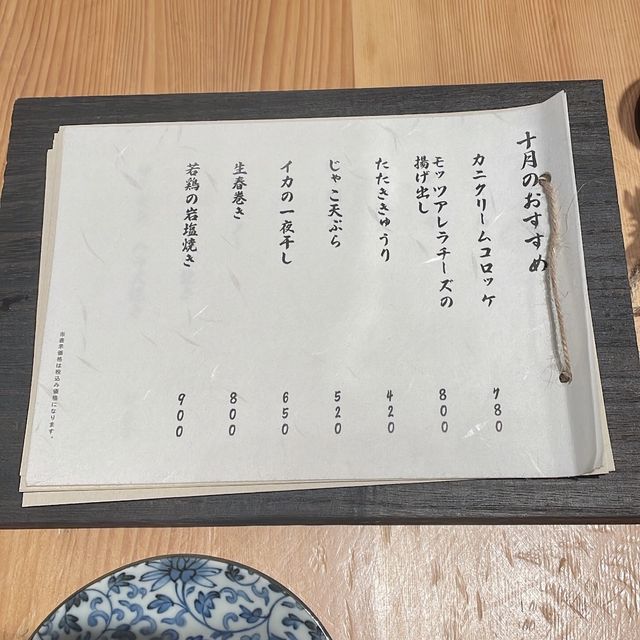 十月のおすすめ
カニクリームコロッケ
780
モッツアレラチーズの
揚げ出し
800
たたききゅうり
420
じゃこ天ぷら
520
イカの一夜干し
650
生春巻き
800
若鶏の岩塩焼き
900
※表示価格は税込み価格になります。